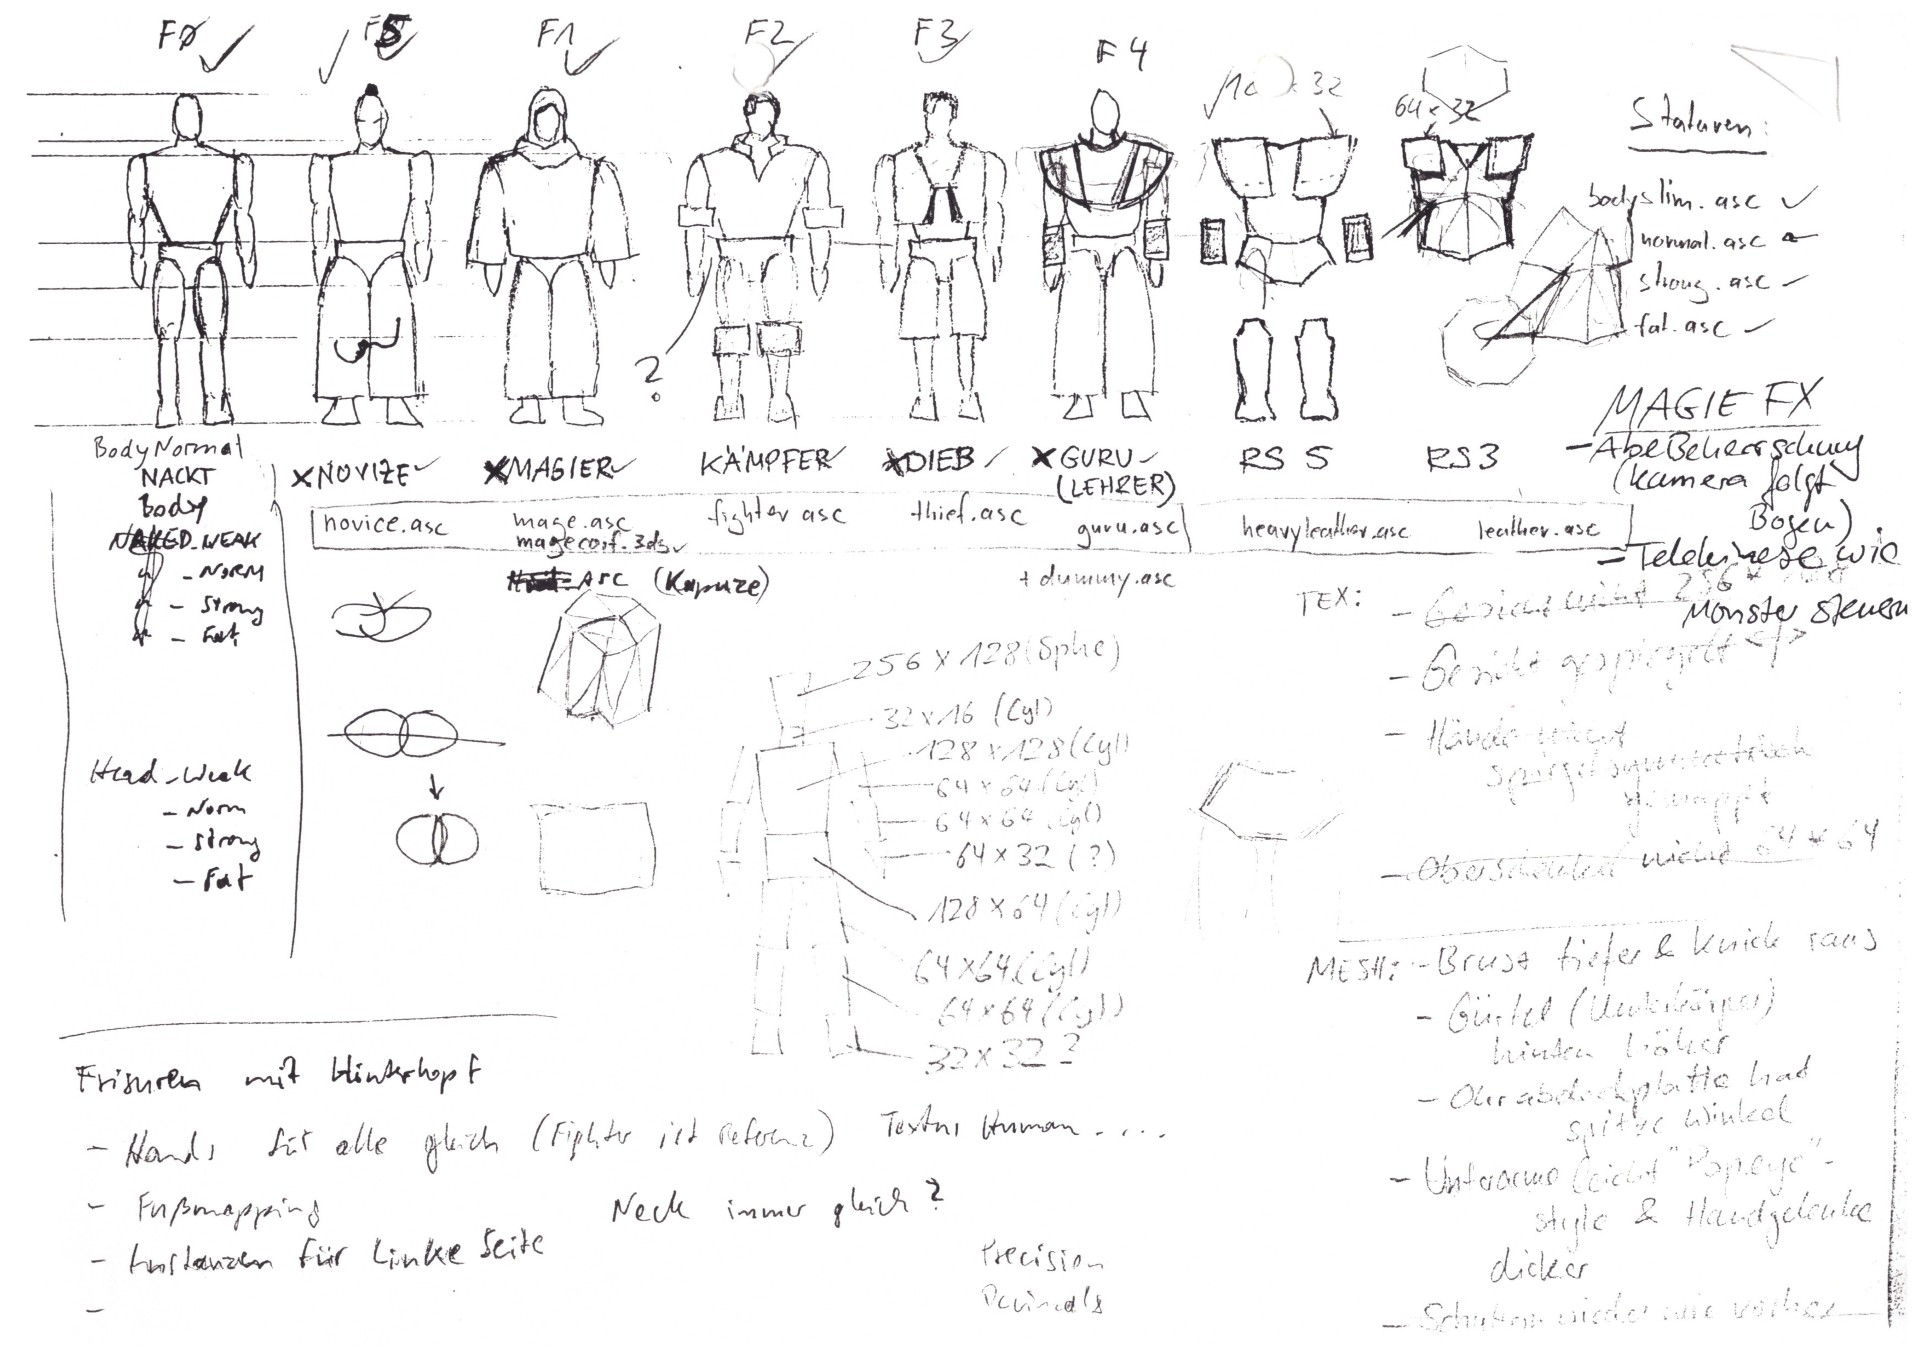 F0
F5
F1
F2
F3
F4
64x32
Staturen:
bodyslim.asc
normal.asc
strong.asc
fat.asc
MAGIE FX
(Kamera folgt
Bogen)
- Telekinese wie
Monster steuern
BodyNormal
NACKT
Body
NAKED_WEAK
- NORM
- Strong
- Fat
XNOVIZE
XMAGIER
KÄMPFER
XDIEB
XGURU
(LEHRER)
RS 5
RS3
?
novice.asc
mage.asc
fighter asc
thief.asc
guru.asc
heavyleather.asc
leather.asc
.ASC (Kapuze)
+ dummy.asc
Head_Weak
- Norm
- Strong
- Fat
256 x 128 (Sphe)
32x16 (Cyl)
128x128 (Cyl)
64x64 (Cyl)
64x64 (Cyl)
64x32 (?)
128x64 (Cyl)
64x64 (Cyl)
64x64 (Cyl)
32x32 ?
TEX:
- Gesicht nicht 256 x
- Gesicht gespiegelt
- Hände nicht
spiegelsymmetrisch
gemappt
- Oberschenkel nicht 64 x 64
MESH: - Brust tiefer & Knick raus
- Gürtel (Unterkörper)
hinten höher
- Ohrabdeckplatte hat
spitze Winkel
- Unterarme leicht "Popeye"-
style & Handgelenke
dicker
- Schultern wieder wie vorher
Frisuren mit Hinterkopf
- Hands für alle gleich (Fighter ist Referenz)
Human ....
- Fußmapping
Neck immer gleich?
- Instanzen für Linke Seite
-
Precision
Decimals